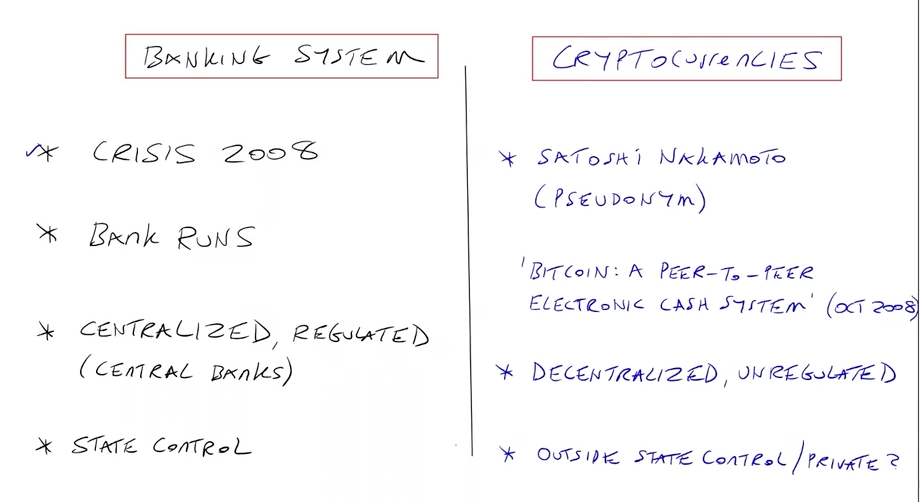 BANKING SYSTEM
* CRISIS 2008
* BANK RUNS
* CENTRALIZED, REGULATED
(CENTRAL BANKS)
* STATE CONTROL
CRYPTOCURRENCIES
* SATOSHI NAKAMOTO
(PSEUDONYM)
'BITCOIN: A PEER-TO-PEER
ELECTRONIC CASH SYSTEM' (OCT 2008)
* DECENTRALIZED, UNREGULATED
* OUTSIDE STATE CONTROL/PRIVATE?